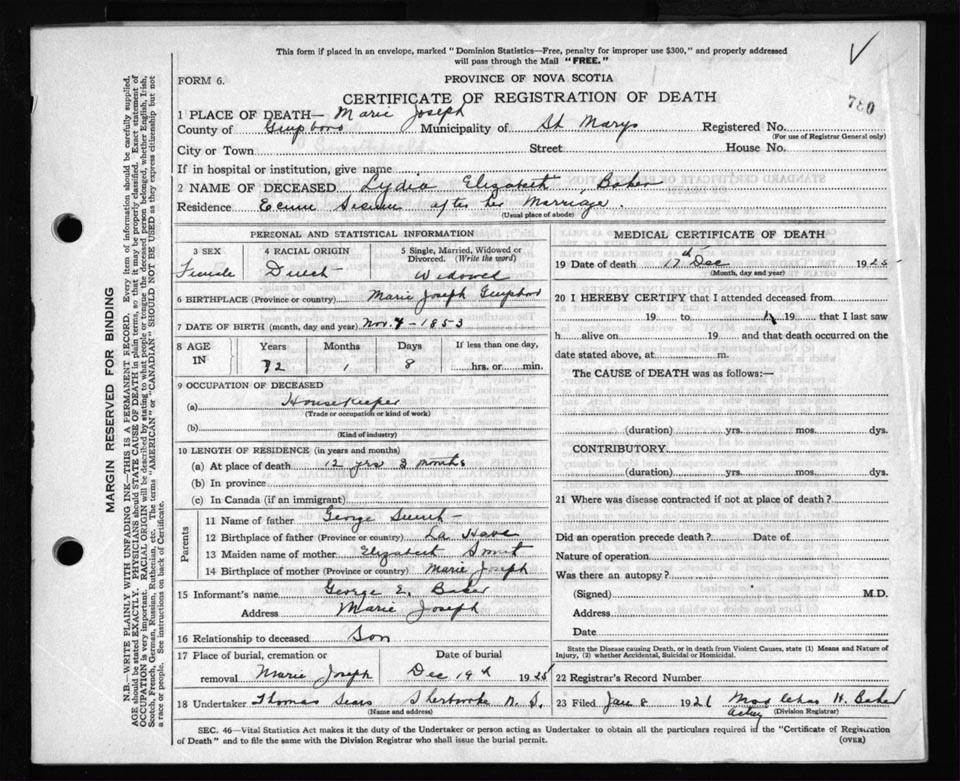 This form if placed in an envelope, marked "Dominion Statistics—Free, penalty for improper use $300," and properly addressed
will pass through the Mail "FREE."
FORM 6.
PROVINCE OF NOVA SCOTIA
780
CERTIFICATE OF REGISTRATION OF DEATH
1 PLACE OF DEATH— Marie Joseph
County of Guysboro Municipality of St Marys Registered No.
(For use of Registrar General only)
City or Town Street House No.
If in hospital or institution, give name
2 NAME OF DECEASED Lydia Elizabeth Baker
Residence Ecum Secum after her Marriage.
(Usual place of abode)
PERSONAL AND STATISTICAL INFORMATION
3 SEX 4 RACIAL ORIGIN 5 Single, Married, Widowed or Divorced. (Write the word)
Female Dutch Widowed
6 BIRTHPLACE (Province or country) Marie Joseph Guysboro
7 DATE OF BIRTH (month, day and year) Nov. 9 - 1853
8 AGE IN Years Months Days If less than one day,
72 1 8 hrs. or min.
9 OCCUPATION OF DECEASED
(a) Housekeeper
(Trade or occupation or kind of work)
(b)
(Kind of industry)
10 LENGTH OF RESIDENCE (in years and months)
(a) At place of death 12 yrs 3 months
(b) In province
(c) In Canada (if an immigrant)
Parents
11 Name of father George
12 Birthplace of father (Province or country) La Have
13 Maiden name of mother Elizabeth
14 Birthplace of mother (Province or country) Marie Joseph
15 Informant's name George E. Baker
Address Marie Joseph
16 Relationship to deceased Son
17 Place of burial, cremation or Date of burial
removal Marie Joseph Dec 19th 1925
18 Undertaker Thomas Sears Sherbrooke N.S.
(Name and address)
MEDICAL CERTIFICATE OF DEATH
19 Date of death 17th Dec 1925
(Month, day and year)
20 I HEREBY CERTIFY that I attended deceased from
19 to 19 that I last saw
h alive on 19 and that death occurred on the
date stated above, at m.
The CAUSE of DEATH was as follows:—
(duration) yrs. mos. dys.
CONTRIBUTORY.
(duration) yrs. mos. dys.
21 Where was disease contracted if not at place of death?
Did an operation precede death? Date of
Nature of operation
Was there an autopsy?
(Signed) M.D.
Address
Date
State the Disease causing Death, or in death from Violent Causes, state (1) Means and Nature of
Injury, (2) whether Accidental, Suicidal or Homicidal.
22 Registrar's Record Number
23 Filed Jan 8 1926 Mrs H. Baker
acting (Division Registrar)
SEC. 46—Vital Statistics Act makes it the duty of the Undertaker or person acting as Undertaker to obtain all the particulars required in the "Certificate of Registration
of Death" and to file the same with the Division Registrar who shall issue the burial permit. (OVER)
MARGIN RESERVED FOR BINDING
N.B.—WRITE PLAINLY WITH UNFADING INK—THIS IS A PERMANENT RECORD. Every item of information should be carefully supplied.
AGE should be stated EXACTLY. PHYSICIANS should STATE CAUSE OF DEATH in plain terms, so that it may be properly classified. Exact statement of
OCCUPATION is very important. RACIAL ORIGIN will be described by stating to what people or tongue the deceased person belonged, whether English, Irish,
Scotch, French, German, Russian, Ruthenian, etc. The terms "AMERICAN" or "CANADIAN" SHOULD NOT BE USED as they express citizenship but not
a race or people. See instructions on back of Certificate.